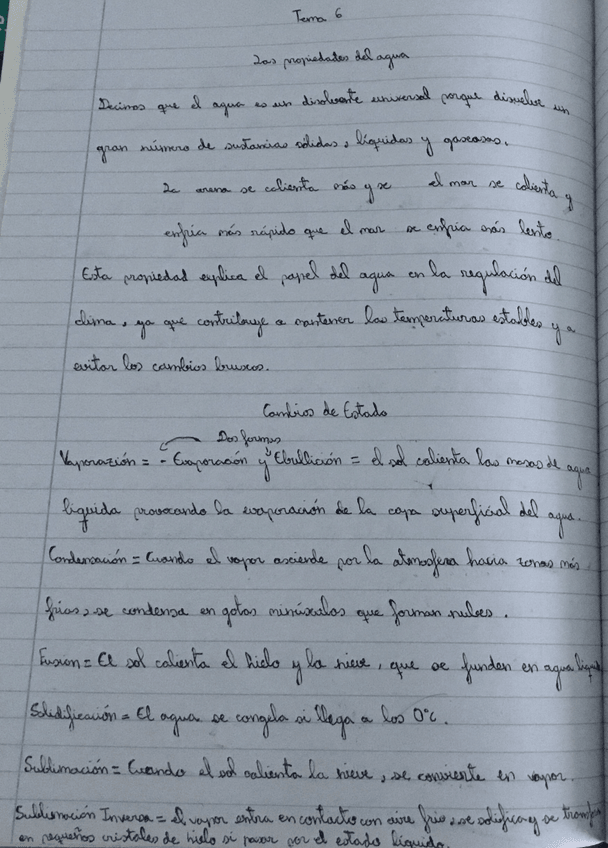 Tema 6
Las propiedades del agua
Decimos que el agua es un disolvente universal porque disuelve un
gran número de sustancias sólidas, líquidas y gaseosas.
La arena se calienta más y se el mar se calienta y
enfría más rápido que el mar se enfría más lento.
Esta propiedad explica el papel del agua en la regulación del
clima, ya que contribuye a mantener las temperaturas estables y a
evitar los cambios bruscos.
Cambios de Estado
Dos formas
Vaporazión = - Evaporación y Ebullición = el sol calienta las masas de agua
líquida provocando la evaporación de la capa superficial del agua.
Condensación = Cuando el vapor asciende por la atmosfera hacia zonas más
frías, se condensa en gotas minúsculas que forman nubes.
Fusión = El sol calienta el hielo y la nieve, que se funden en agua líquida
Solidificación = El agua se congela si llega a los 0°c.
Sublimación = Cuando el sol calienta la nieve, se convierte en vapor.
Sublimación Inversa = El vapor entra en contacto con aire frío, se solifica y se transforma
en pequeños cristales de hielo si pasar por el estado líquido.